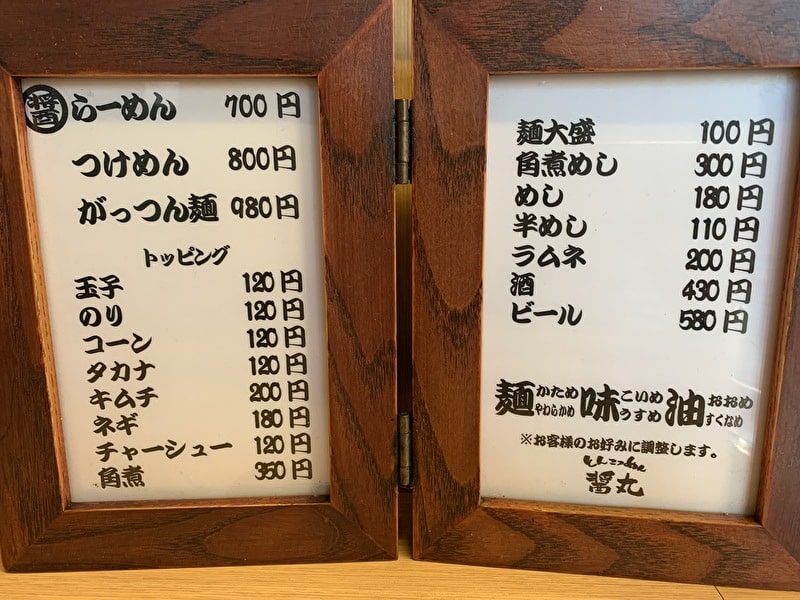 醤らーめん 700円
つけめん 800円
がっつん麺 980円
トッピング
玉子 120円
のり 120円
コーン 120円
タカナ 120円
キムチ 200円
ネギ 180円
チャーシュー 120円
角煮 350円
麺大盛 100円
角煮めし 300円
めし 180円
半めし 110円
ラムネ 200円
酒 430円
ビール 580円
麺かためやわらかめ 味こいめうすめ 油おおめすくなめ
※お客様のお好みに調整します。
とんこつらーめん
醤丸